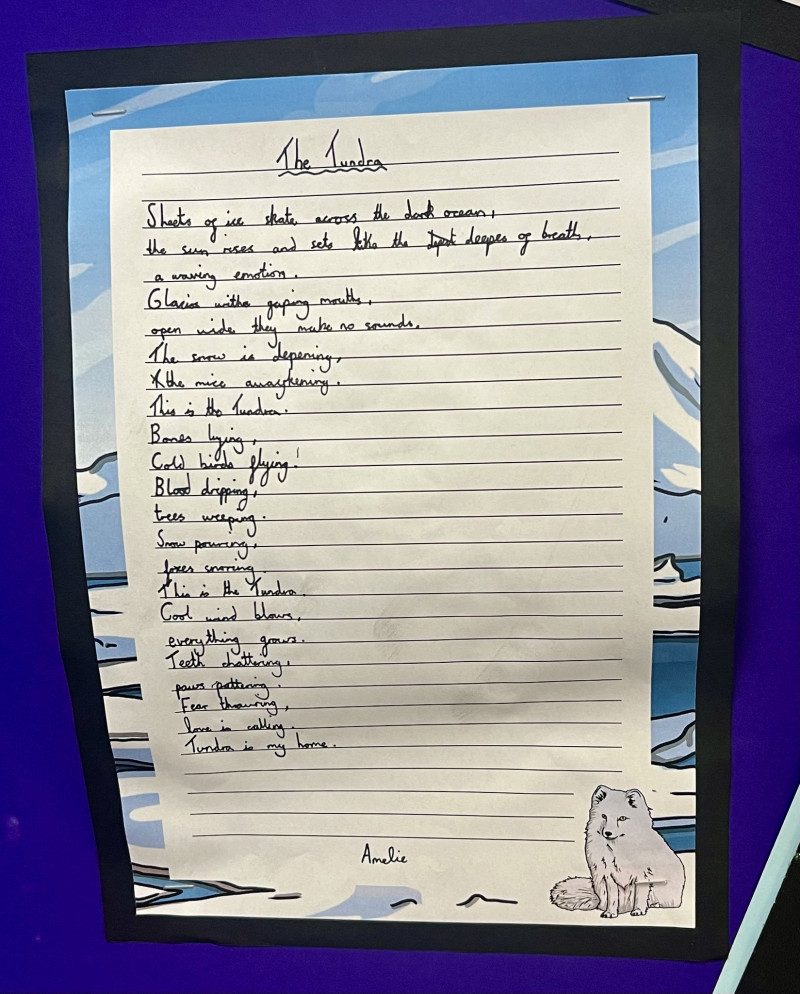 The Tundra
Sheets of ice skate across the dark ocean,
the sun rises and sets like the deepes of breath,
a waving emotion.
Glacios witha gaping mouths,
open wide they make no sounds.
The snow is depening,
the mice awaykening.
This is the Tundra.
Bones lying,
Cold birds flying!
Blood dripping,
trees weeping.
Snow pouring,
foxes snoring.
This is the Tundra.
Cool wind blows,
everything grows.
Teeth chattering,
paws pattering.
Fear thawring,
love is calling.
Tundra is my home.
Amelie